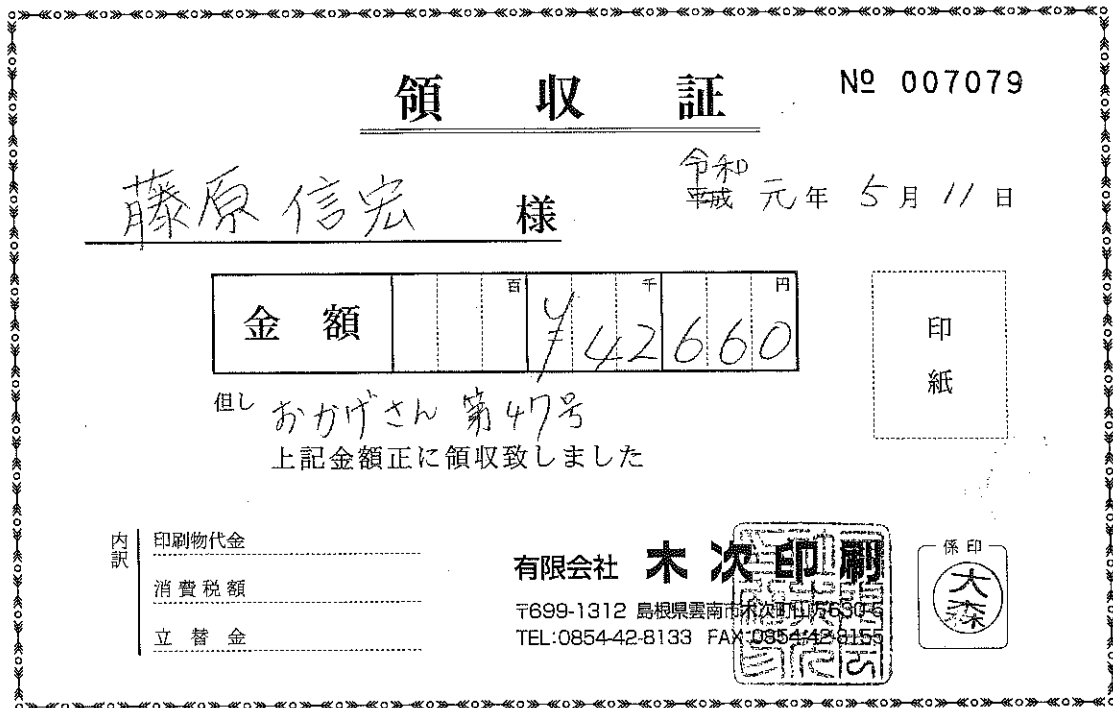 領収証
№ 007079
藤原 信宏 様
令和
平成 元年 5月 11日
金額 百 千 円
¥42660
印紙
但し おかげさん 第47号
上記金額正に領収致しました
内訳
印刷物代金
消費税額
立替金
有限会社 木次印刷
〒699-1312 島根県雲南市木次町山方630-5
TEL:0854-42-8133 FAX:0854-42-8155
係印
大森